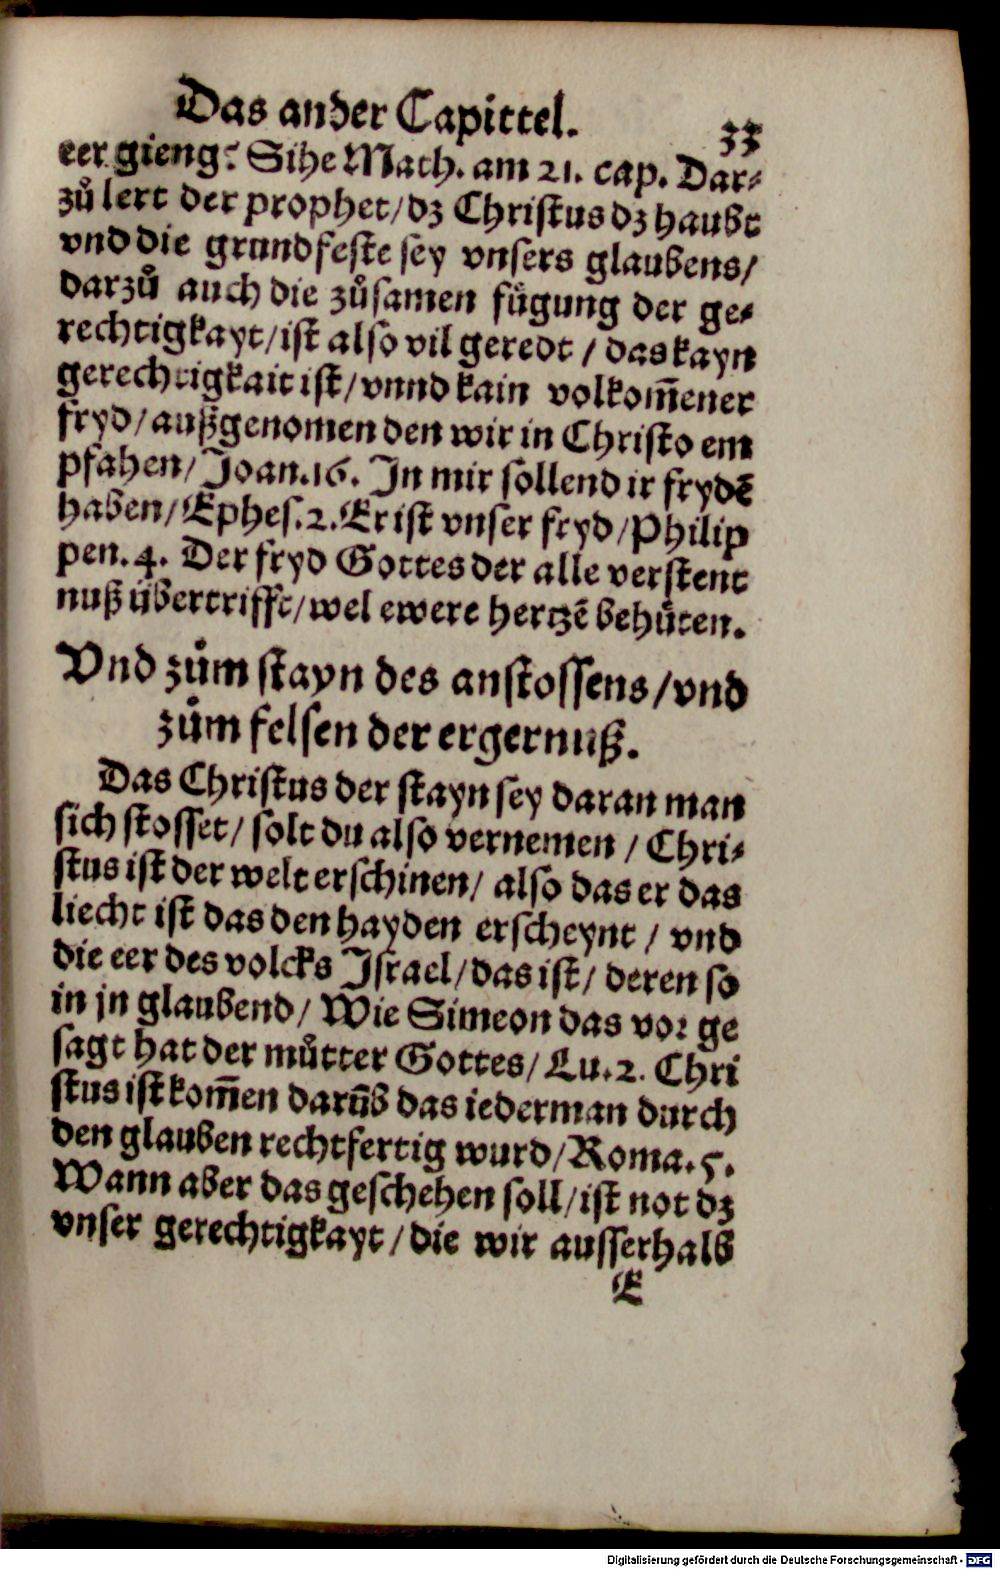 Das ander Capittel.
33
eer gieng? Sihe Math. am 21. cap. Dar⸗
zů lert der prophet/dz Christus dz haubt
vnd die grundfeste sey vnsers glaubens/
darzů auch die zůsamen fůgung der ge⸗
rechtigkayt/ist also vil geredt / das kayn
gerechtigkait ist/vnnd kain volkom̄ener
fryd/außgenomen den wir in Christo em
pfahen/Joan.16. In mir sollend ir frydē
haben/Ephes.2.Er ist vnser fryd/Philip
pen.4. Der fryd Gottes der alle verstent
nuß übertrifft/wel ewere hertzē behůten.
Vnd zům stayn des anstossens/vnd
zům felsen der ergernuß.
Das Christus der stayn sey daran man
sich stosset/ solt du also vernemen / Chri⸗
stus ist der welt erschinen/ also das er das
liecht ist das den hayden erscheynt / vnd
die eer des volcks Israel/das ist/ deren so
in jn glaubend/ Wie Simeon das vor ge
sagt hat der můtter Gottes/ Lu.2. Chri
stus ist kom̄en darūb das iederman durch
den glauben rechtfertig wurd/Roma.5.
Wann aber das geschehen soll/ist not dz
vnser gerechtigkayt/die wir ausserhalb
E
Digitalisierung gefördert durch die Deutsche Forschungsgemeinschaft - DFG